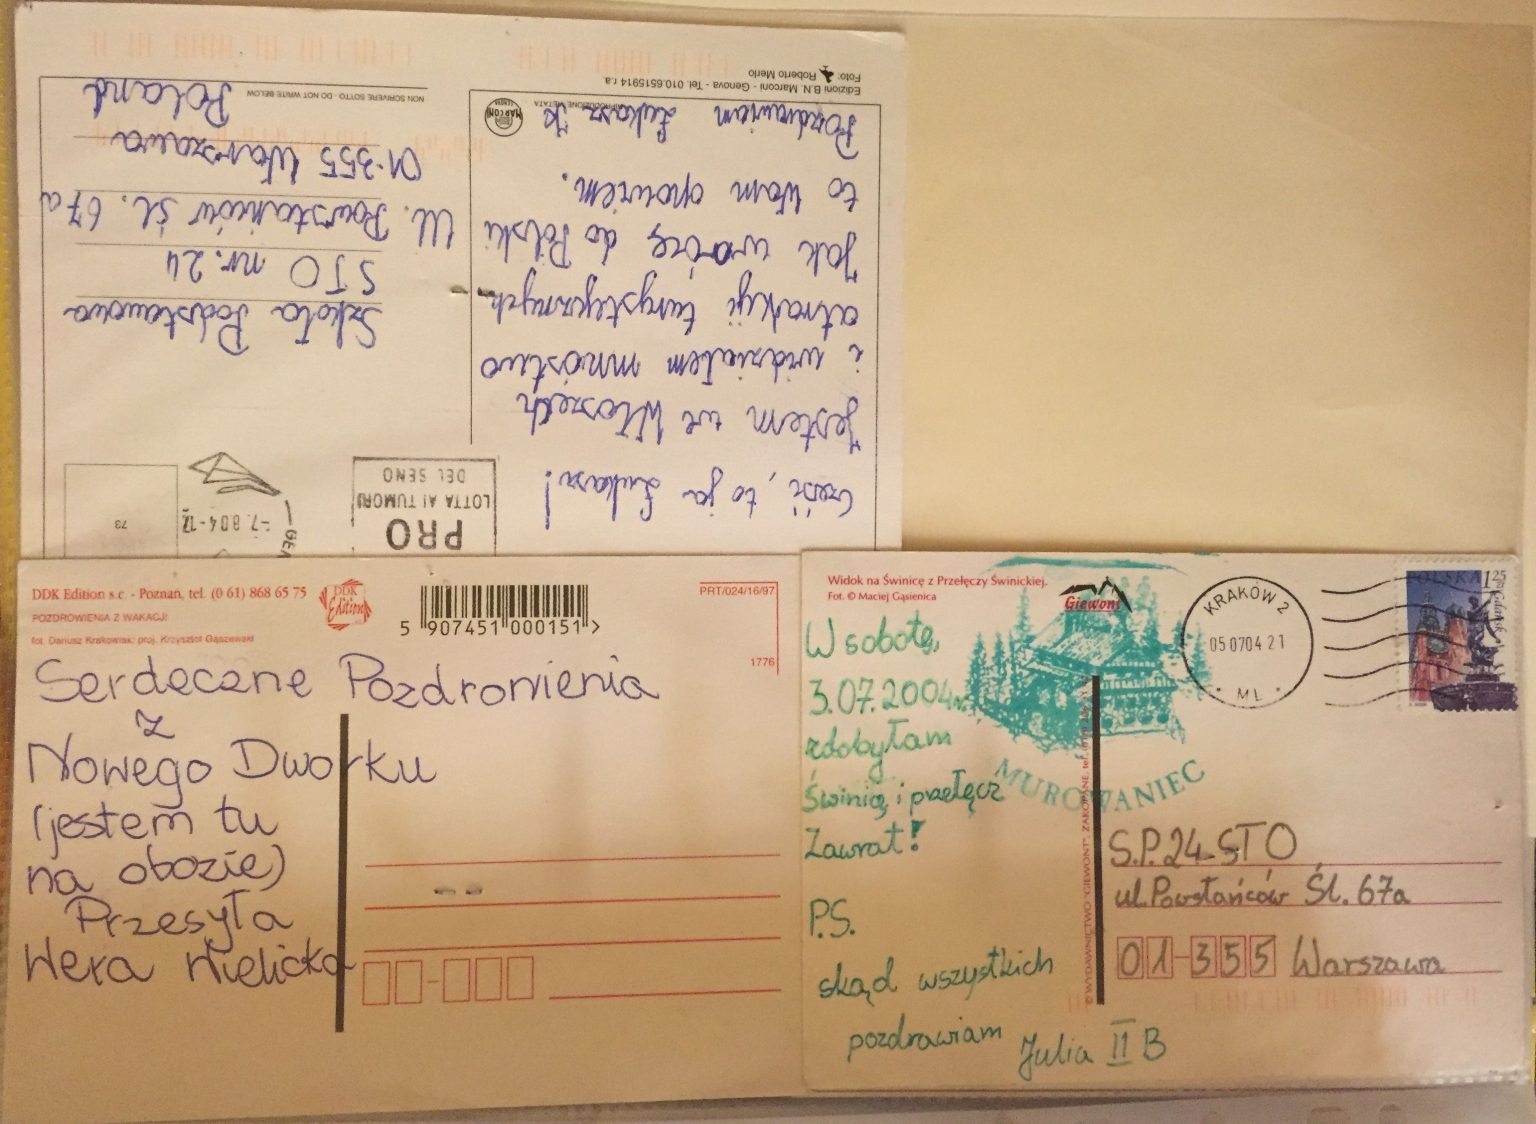 Cześć, to ja Łukasz!
Jestem we Włoszech
i widziałem mnóstwo
atrakcji turystycznych
jak wrócę do Polski
to Wam opowiem.
Pozdrawiam Łukasz K
Edizioni B.N. Marconi - Genova - Tel. 010.6515914 r.a.
Foto: Roberto Merlo
MARCONI
GENOVA
RIPRODUZIONE VIETATA
PRO
LOTTA AI TUMORI
DEL SENO
-7.804-17
73
Szkoła Podstawowa
STO nr. 24
Ul. Powstańców Śl. 67a
01-355 Warszawa
Poland
NON SCRIVERE SOTTO - DO NOT WRITE BELOW
DDK Edition s.c. - Poznań, tel. (0 61) 868 65 75
POZDROWIENIA Z WAKACJI
fot. Dariusz Krakowiak; proj. Krzysztof Gąszewski
DDK
Edition
5 907451 000151 >
PRT/024/16/97
1776
Serdeczne Pozdrowienia
z
Nowego Dworku
(jestem tu
na obozie)
Przesyła
Wera Wielicka
Widok na Świnicę z Przełęczy Świnickiej.
Fot. © Maciej Gąsienica
Giewont
W sobotę,
3.07.2004r.
zdobyłam
Świnicę i przełęcz
Zawrat!
P.S.
skąd wszystkich
pozdrawiam Julia II B
MUROWANIEC
© WYDAWNICTWO "GIEWONT", ZAKOPANE, tel.
KRAKÓW 2
05.0704.21
ML
POLSKA 1,25 zł
Gdańsk
S.P. 24 STO
ul. Powstańców Śl. 67a
01-355 Warszawa